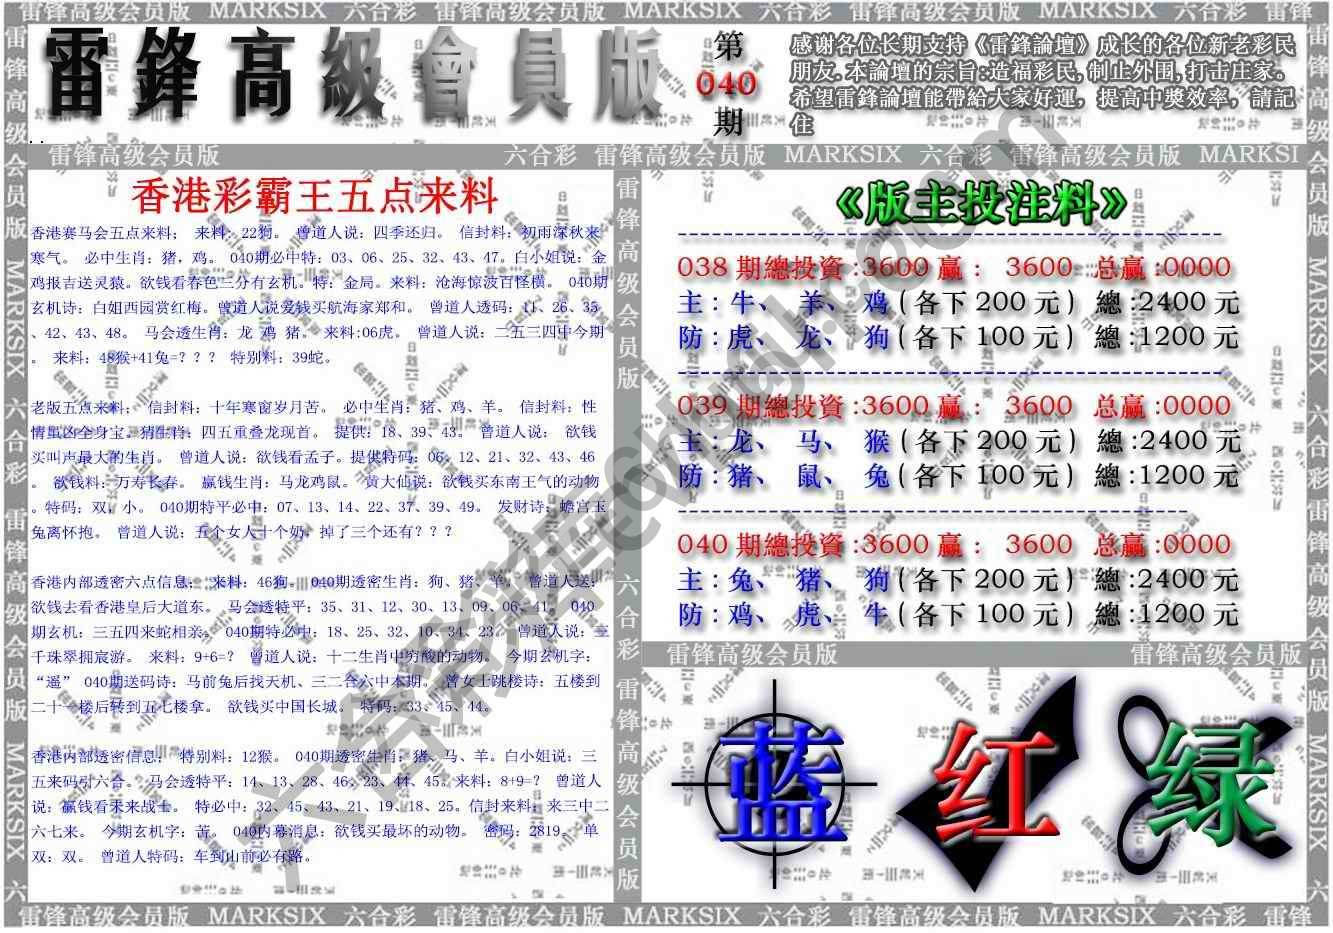 雷锋高级会员版 MARKSIX 六合彩 雷锋高级会员版 MARKSIX 六合彩 雷锋高级会员版 MARKSIX 六合彩 雷锋
雷鋒高級會員版
第
040
期
感谢各位长期支持《雷鋒論壇》成长的各位新老彩民
朋友.本論壇的宗旨:造福彩民,制止外围,打击庄家。
希望雷鋒論壇能帶給大家好運，提高中獎效率，請記
住
雷锋高级会员版 六合彩 雷锋高级会员版 MARKSIX 六合彩 雷锋高级会员版 MARKSI
香港彩霸王五点来料
香港赛马会五点来料； 来料：22狗。 曾道人说：四季还归。 信封料：初雨深秋来
寒气。 必中生肖：猪、鸡。 040期必中特：03、06、25、32、43、47。白小姐说：金
鸡报吉送灵猿。欲钱看春色三分有玄机。特：金局。来料：沧海惊波百怪横。 040期
玄机诗：白姐西园赏红梅。曾道人说爱钱买航海家郑和。 曾道人透码：11、26、35
、42、43、48。 马会透生肖：龙 鸡 猪。 来料:06虎。 曾道人说：二五三四中今期
。 来料：48猴+41兔=？？？ 特别料：39蛇。
老版五点来料； 信封料：十年寒窗岁月苦。 必中生肖：猪、鸡、羊。 信封料：性
情凶凶全身宝。猜生肖：四五重叠龙现首。 提供：18、39、43。 曾道人说： 欲钱
买叫声最大的生肖。 曾道人说：欲钱看孟子。提供特码：06、12、21、32、43、46
。 欲钱料：万寿长春。 赢钱生肖：马龙鸡鼠。 黄大仙说：欲钱买东南王气的动物
。特码：双，小。 040期特平必中：07、13、14、22、37、39、49。 发财诗：蟾宫玉
兔离怀抱。 曾道人说：五个女人十个奶，掉了三个还有？？？
香港内部透密六点信息； 来料：46狗。 040期透密生肖：狗、猪、羊。 曾道人送：
欲钱去看香港皇后大道东。 马会透特平：35、31、12、30、13、09、06、41。 040
期玄机：三五四来蛇相亲。 040期特必中：18、25、32、10、34、23。 曾道人说：三
千珠翠拥宸游。 来料：9+6=？ 曾道人说：十二生肖中穷酸的动物。 今期玄机字：
“遥” 040期送码诗：马前兔后找天机、三二合六中本期。 曾女士跳楼诗：五楼到
二十一楼后转到五七楼拿。 欲钱买中国长城。 特码：33、45、44。
香港内部透密信息； 特别料：12猴。 040期透密生肖：猪、马、羊。白小姐说：三
五来码引六合。 马会透特平：14、13、28、46、23、44、45。来料：8+9=？ 曾道人
说：赢钱看未来战士。 特必中：32、45、43、21、19、18、25。信封来料：来三中二
六七来。 今期玄机字：苦。 040内幕消息：欲钱买最坏的动物。 密码：2819。 单
双：双。 曾道人特码：车到山前必有路。
《版主投注料》
038 期總投資:3600 赢： 3600 总赢:0000
主：牛、 羊、 鸡(各下 200 元) 總:2400 元
防：虎、 龙、 狗(各下 100 元) 總:1200 元
039 期總投資:3600 赢： 3600 总赢:0000
主：龙、 马、 猴(各下 200 元) 總:2400 元
防：猪、 鼠、 兔(各下 100 元) 總:1200 元
040 期總投資:3600 赢： 3600 总赢:0000
主：兔、 猪、 狗(各下 200 元) 總:2400 元
防：鸡、 虎、 牛(各下 100 元) 總:1200 元
雷锋高级会员版 雷锋高级会员版
蓝 红 绿
雷锋高级会员版 MARKSIX 六合彩 雷锋高级会员版 MARKSIX 六合彩 雷锋高级会员版 MARKSIX 六合彩 雷锋